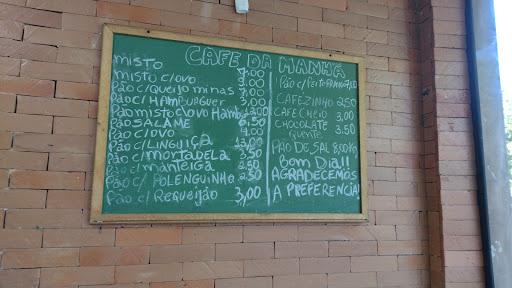 CAFE DA MANHÃ
MISTO 7,00
MISTO C/OVO 9.00
PÃO C/QUEIJO MINAS 7,00
PÃO C/HAMBURGUER 3,00
PÃO MISTO C/OVO HAMB
PÃO SALAME 6,50
PÃO C/OVO 4,00
PÃO C/LINGUIÇA
PÃO C/MORTADELA 3,50
PÃO C/MANTEIGA 2,50
PÃO C/POLENGUINHO 2,50
PÃO C/REQUEIJÃO 3,00
PÃO C/PEITO FRANGO 7,00
CAFEZINHO 2,50
CAFÉ CHEIO 3,00
CHOCOLATE
QUENTE 3.50
PÃO DE SAL 8,00 KG
BOM DIA!!
AGRADECEMOS
A PREFERENCIA!